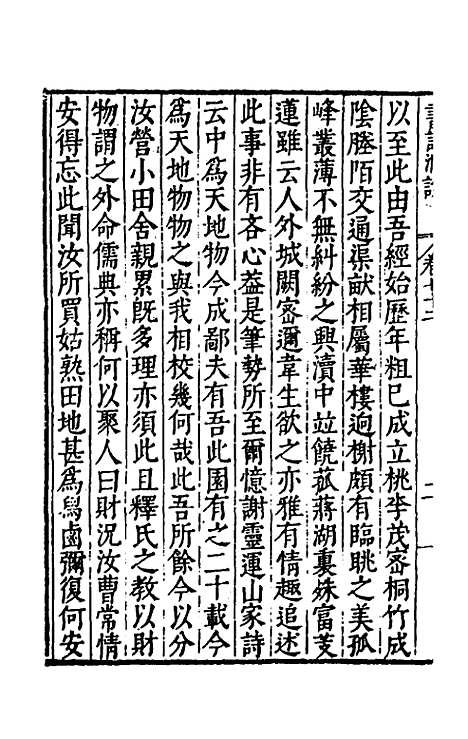 以至此由吾經始歷年粗巳成立桃李茂密桐竹成
陰塍陌交通渠畎相屬華樓迥榭頗有臨眺之美孤
峰叢薄不無糾紛之興瀆中竝饒菰蔣湖裏殊富芰
蓮雖云人外城闕密邇韋生欲之亦雅有情趣追述
此事非有吝心葢是筆勢所至爾憶謝靈運山家詩
云中爲天地物今成鄙夫有吾此園有之二十載今
爲天地物物之與我相校幾何哉此吾所餘今以分
汝營小田舍親累旣多理亦須此且釋氏之教以財
物謂之外命儒典亦稱何以聚人曰財況汝曹常情
安得忘此聞汝所買姑熟田地甚爲舄鹵彌復何安